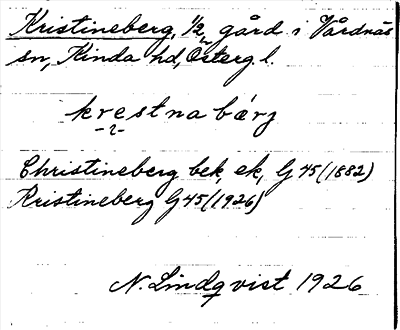 Kristineberg, 1/2, gård i Vårdnäs
sn, Kinda hd, Österg. l.
krestnabärj
Christineberg bek. ek. G 45 (1882)
Kristineberg G 45 (1926)
N. Lindqvist 1926